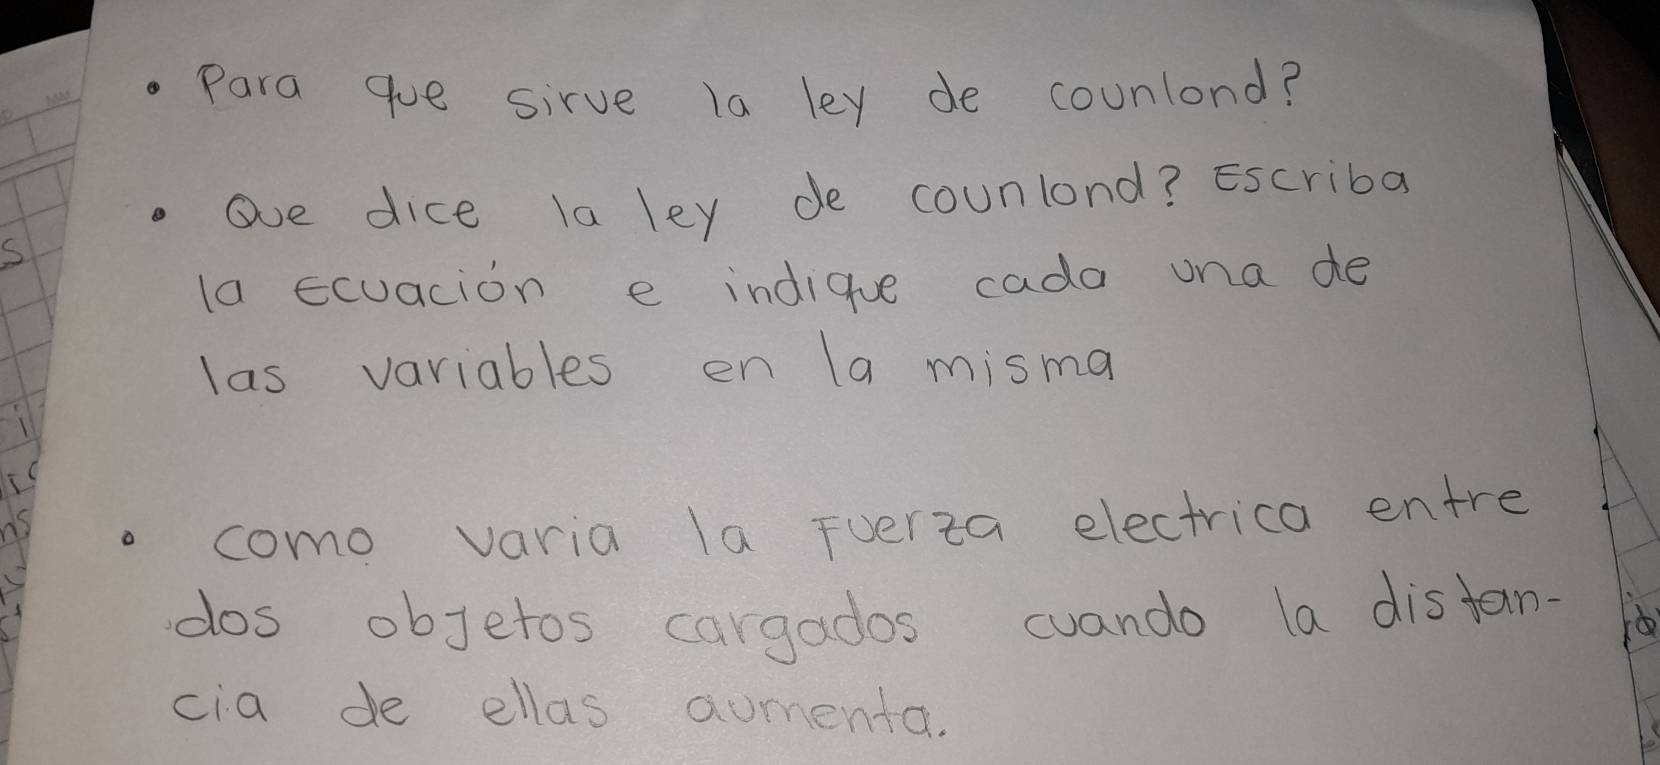 • Para que sirve la ley de counlond?
• Que dice la ley de counlond? Escriba
la Ecuación e indique cada una de
las variables en la misma
• como varia la Fuerza electrica entre
dos objetos cargados cuando la distan-
cia de ellas aumenta.